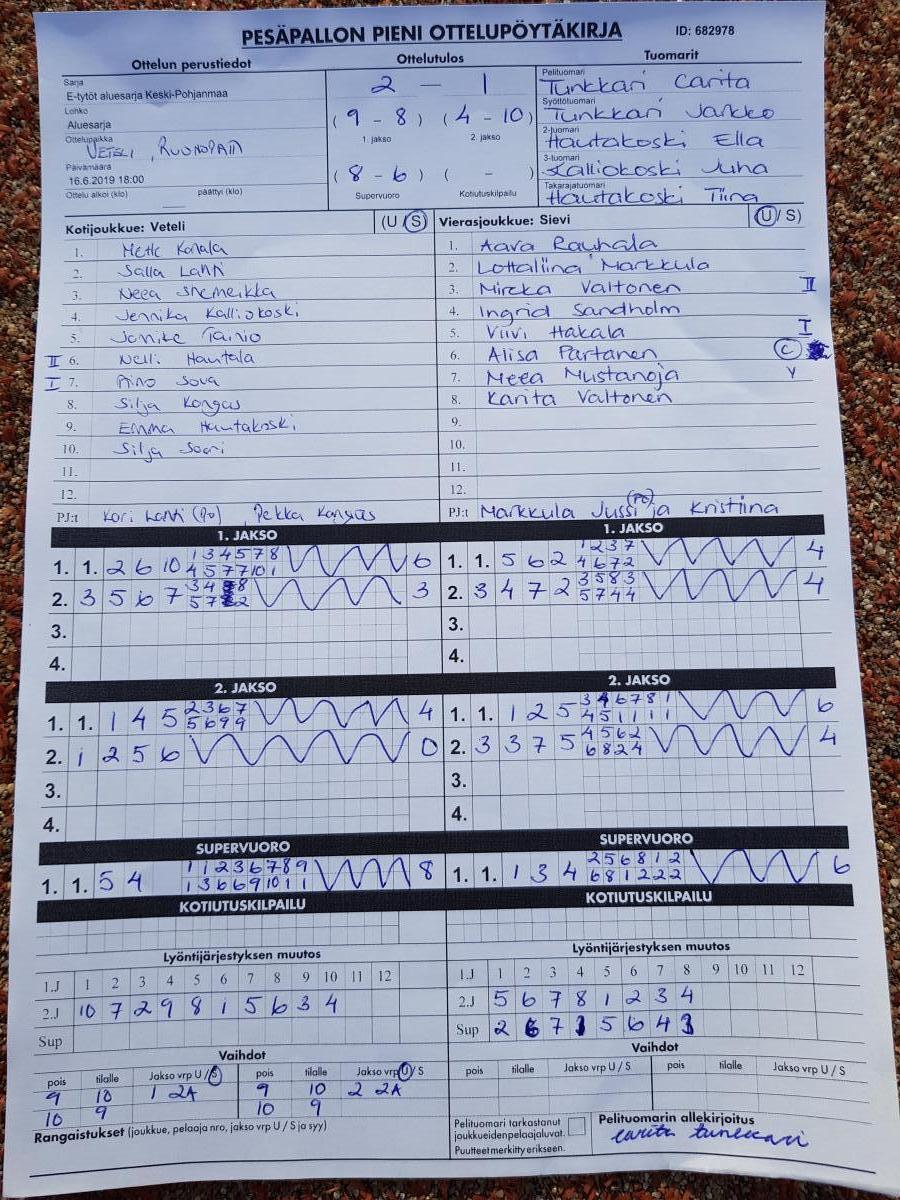 PESÄPALLON PIENI OTTELUPÖYTÄKIRJA ID: 682978
Ottelun perustiedot Ottelutulos Tuomarit
Sarja
E-tytöt aluesarja Keski-Pohjanmaa
Lohko
Aluesarja
Ottelupaikka
VETELI, RUOKOPÄÄ
Päivämäärä
16.6.2019 18:00
Ottelu alkoi (klo) päättyi (klo)
2 — 1
(9 - 8) (4 - 10)
1. jakso 2. jakso
(8 - 6) ( - )
Supervuoro Kotiutuskilpailu
Pelituomari
Tunkkari Carita
Syöttötuomari
Tunkkari Jarkko
2-tuomari
Hautakoski Ella
3-tuomari
Kalliokoski Juha
Takarajatuomari
Hautakoski Tiina
Kotijoukkue: Veteli (U/S) Vierasjoukkue: Sievi (U/S)
1. Mette
2. Salla Lahti
3. Neea
4. Jennika Kalliokoski
5. Tainio
II 6. Nelli Hautala
I 7. Aino Sova
8. Silja Kangas
9. Emma Hautakoski
10. Silja
11.
12.
PJ:t Lahti (PO), Pekka Kangas
1. Aava Rauhala
2. Lottaliina Markkula
3. Mircka Valtonen II
4. Ingrid Sandholm
5. Viivi Hakala I
6. Alisa Partanen C
7. Meea Mustanoja Y
8. Karita Valtonen
9.
10.
11.
12.
PJ:t Markkula Jussi (PO) ja Kristiina
1. JAKSO 1. JAKSO
1. 1. 2 6 10 1 3 4 5 7 8 6
4 5 7 7 10 1
2. 3 5 6 7 3 4 8 3
5 7 2
3.
4.
1. 1. 5 6 2 1 2 3 7 4
4 6 7 2
2. 3 4 7 2 3 5 8 3 4
5 7 4 4
3.
4.
2. JAKSO 2. JAKSO
1. 1. 1 4 5 2 3 6 7 4
5 6 9 9
2. 1 2 5 6 0
3.
4.
1. 1. 1 2 5 3 4 6 7 8 1 6
4 5 1 1 1 1
2. 3 3 7 5 4 5 6 2 4
6 8 2 4
3.
4.
SUPERVUORO SUPERVUORO
1. 1. 5 4 1 1 2 3 6 7 8 9 8
1 3 6 6 9 10 1 1
1. 1. 1 3 4 2 5 6 8 1 2 6
6 8 1 2 2 2
KOTIUTUSKILPAILU KOTIUTUSKILPAILU
Lyöntijärjestyksen muutos Lyöntijärjestyksen muutos
1.J 1 2 3 4 5 6 7 8 9 10 11 12
2.J 10 7 2 9 8 1 5 6 3 4
Sup
1.J 1 2 3 4 5 6 7 8 9 10 11 12
2.J 5 6 7 8 1 2 3 4
Sup 2 6 7 1 5 6 4 3
Vaihdot Vaihdot
pois tilalle Jakso vrp U / S pois tilalle Jakso vrp U / S
9 10 1 2A 9 10 2 2A
10 9 10 9
pois tilalle Jakso vrp U / S pois tilalle Jakso vrp U / S
Rangaistukset (joukkue, pelaaja nro, jakso vrp U / S ja syy)
Pelituomari tarkastanut
joukkueidenpelaajaluvat.
Puutteet merkitty erikseen.
Pelituomarin allekirjoitus
Carita Tunkkari